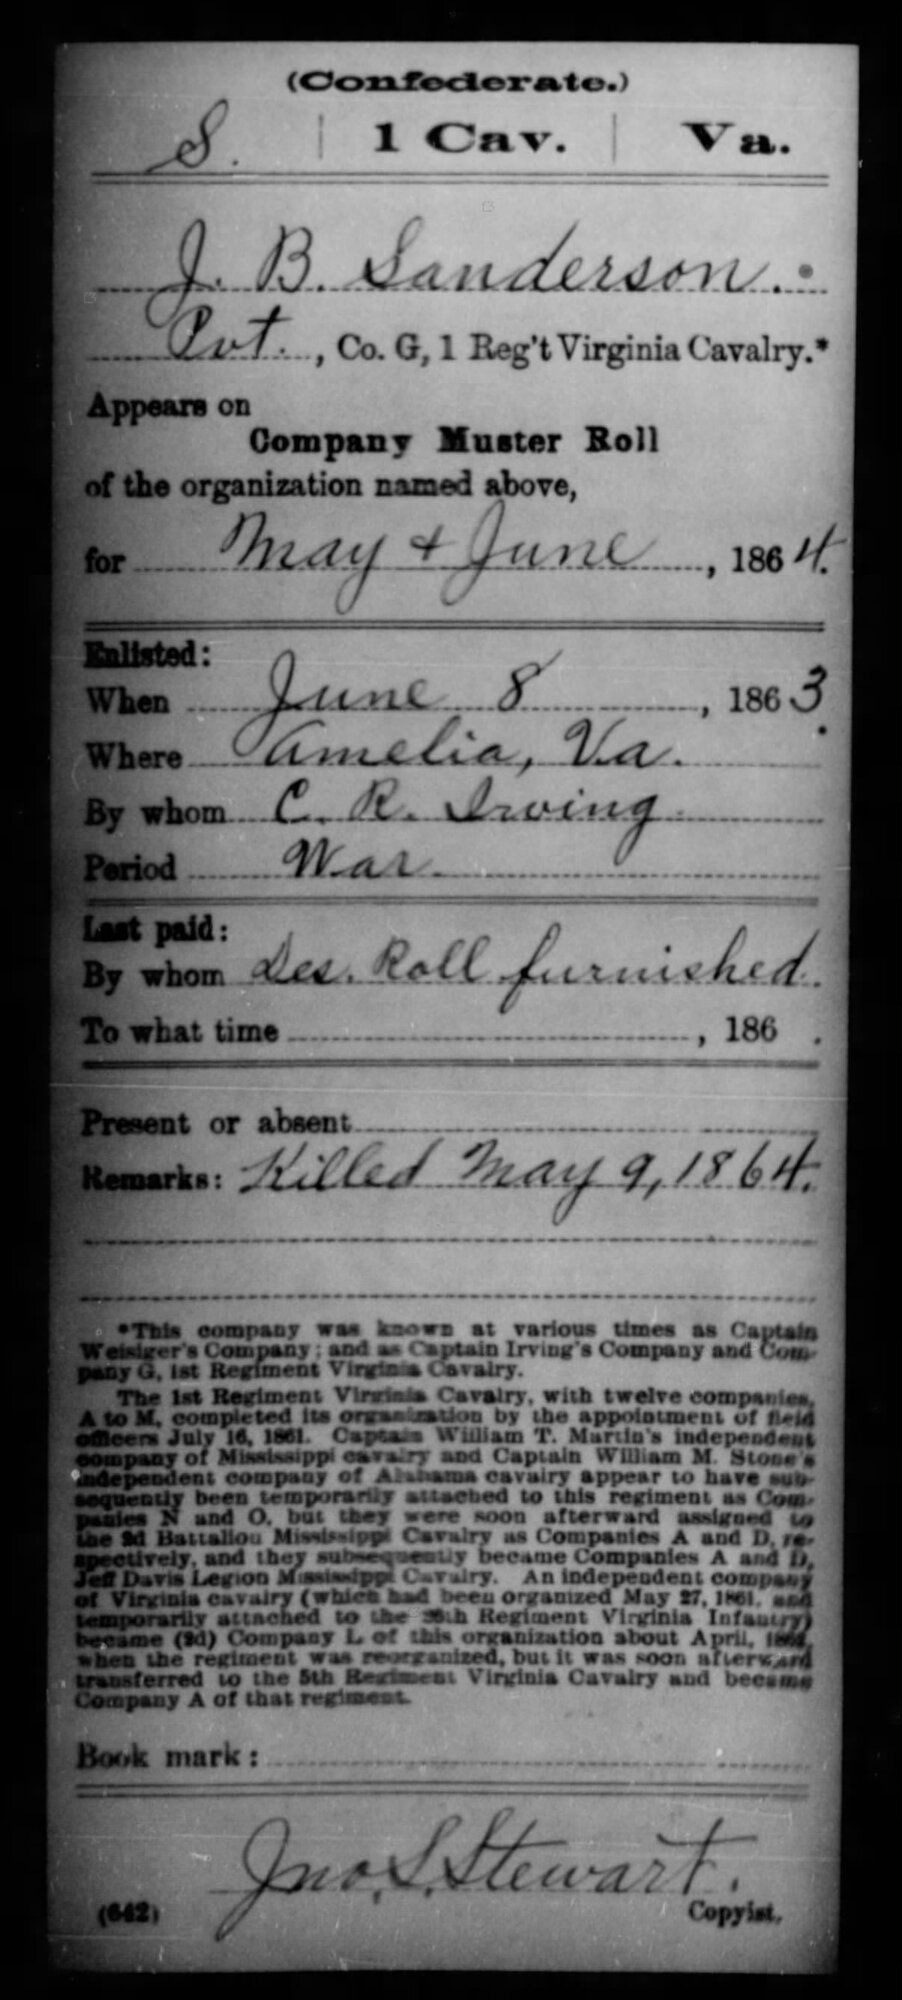 (Confederate.)
S. | 1 Cav. | Va.
J. B. Sanderson.
Pvt., Co. G, 1 Reg't Virginia Cavalry.*
Appears on
Company Muster Roll
of the organization named above,
for May & June, 1864.
Enlisted:
When June 8, 1863.
Where Amelia, Va.
By whom C. R. Irving
Period War.
Last paid:
By whom Des. Roll furnished.
To what time, 186 .
Present or absent
Remarks: Killed May 9, 1864.
*This company was known at various times as Captain
Weisiger's Company; and as Captain Irving's Company and Com-
pany G, 1st Regiment Virginia Cavalry.
The 1st Regiment Virginia Cavalry, with twelve companies,
A to M, completed its organization by the appointment of field
officers July 16, 1861. Captain William T. Martin's independent
company of Mississippi cavalry and Captain William M. Stone's
independent company of Alabama cavalry appear to have sub-
sequently been temporarily attached to this regiment as Com-
panies N and O, but they were soon afterward assigned to
the 2d Battalion Mississippi Cavalry as Companies A and D, re-
spectively, and they subsequently became Companies A and D,
Jeff Davis Legion Mississippi Cavalry. An independent company
of Virginia cavalry (which had been organized May 27, 1861, and
temporarily attached to the Regiment Virginia Infantry)
became (2d) Company L of this organization about April,
when the regiment was reorganized, but it was soon afterward
transferred to the 5th Regiment Virginia Cavalry and became
Company A of that regiment.
Book mark:
Jno. S. Stewart.
(642)
Copyist.